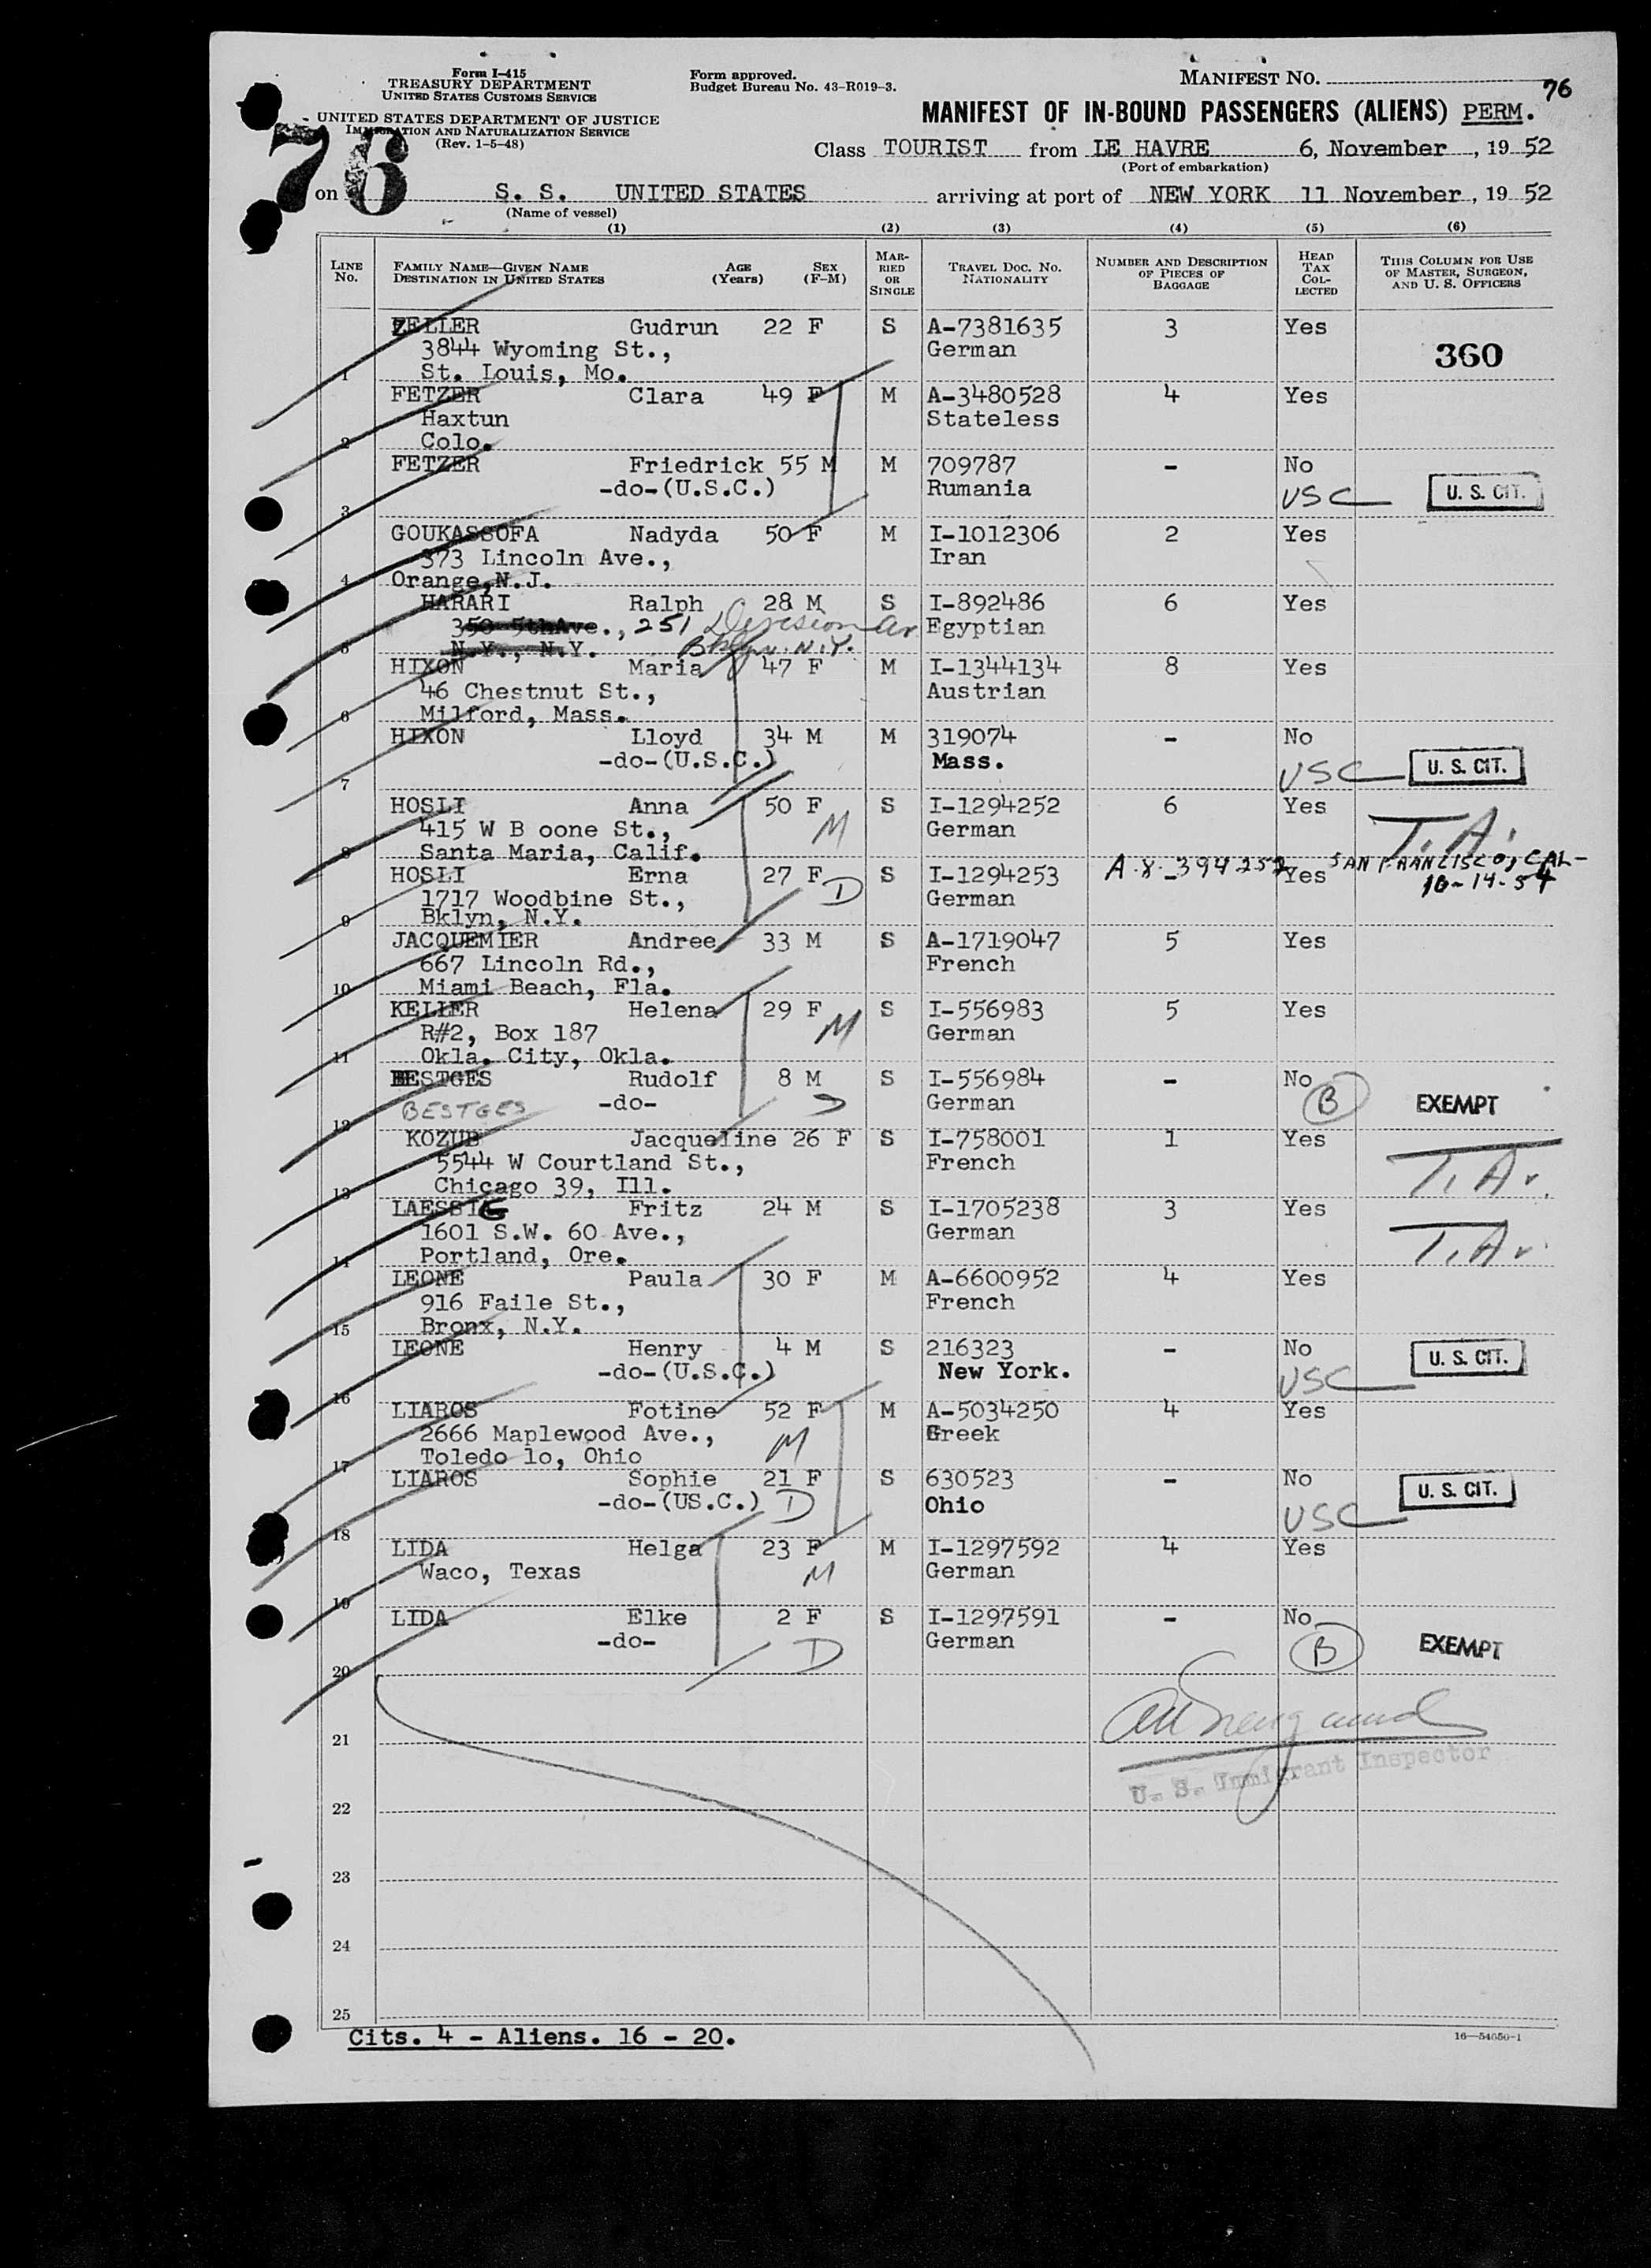 Form I-415
TREASURY DEPARTMENT
UNITED STATES CUSTOMS SERVICE
UNITED STATES DEPARTMENT OF JUSTICE
IMMIGRATION AND NATURALIZATION SERVICE
(Rev. 1-5-48)
Form approved.
Budget Bureau No. 43-R019-3.
MANIFEST NO. 76
MANIFEST OF IN-BOUND PASSENGERS (ALIENS) PERM.
Class TOURIST from LE HAVRE 6, November, 1952
(Port of embarkation)
76
on S. S. UNITED STATES arriving at port of NEW YORK 11 November, 1952
(Name of vessel)
(1) (2) (3) (4) (5) (6)
LINE No. FAMILY NAME—GIVEN NAME DESTINATION IN UNITED STATES AGE (Years) SEX (F-M) MARRIED OR SINGLE TRAVEL DOC. NO. NATIONALITY NUMBER AND DESCRIPTION OF PIECES OF BAGGAGE HEAD TAX COLLECTED THIS COLUMN FOR USE OF MASTER, SURGEON, AND U. S. OFFICERS
ZELLER Gudrun 22 F S A-7381635 3 Yes
3844 Wyoming St., German 360
1 St. Louis, Mo.
FETZER Clara 49 F M A-3480528 4 Yes
Haxtun Stateless
2 Colo.
FETZER Friedrick 55 M M 709787 - No
-do-(U.S.C.) Rumania USC U. S. CIT.
3
GOUKASSOFA Nadyda 50 F M I-1012306 2 Yes
373 Lincoln Ave., Iran
4 Orange,N.J.
HARARI Ralph 28 M S I-892486 6 Yes
350 5thAve., 251 Division Av Egyptian
5 N.Y., N.Y. Bklyn. N.Y.
HIXON Maria 47 F M I-1344134 8 Yes
46 Chestnut St., Austrian
6 Milford, Mass.
HIXON Lloyd 34 M M 319074 - No
-do-(U.S.C.) Mass. USC U. S. CIT.
7
HOSLI Anna 50 F S I-1294252 6 Yes
415 W B oone St., M German T.A.
8 Santa Maria, Calif.
HOSLI Erna 27 F S I-1294253 A.8.394252 - Yes SAN FRANCISCO, CAL-
1717 Woodbine St., D German 10-14-54
9 Bklyn, N.Y.
JACQUEMIER Andree 33 M S A-1719047 5 Yes
667 Lincoln Rd., French
10 Miami Beach, Fla.
KELLER Helena 29 F S I-556983 5 Yes
R#2, Box 187 M German
11 Okla. City, Okla.
BESTGES Rudolf 8 M S I-556984 - No
BESTGES -do- D German B EXEMPT
12
KOZUB Jacqueline 26 F S I-758001 1 Yes
5544 W Courtland St., French T.A.
13 Chicago 39, Ill.
LAESSIG Fritz 24 M S I-1705238 3 Yes
1601 S.W. 60 Ave., German T.A.
14 Portland, Ore.
LEONE Paula 30 F M A-6600952 4 Yes
916 Faile St., French
15 Bronx, N.Y.
LEONE Henry 4 M S 216323 - No
-do-(U.S.C.) New York. USC U. S. CIT.
16
LIAROS Fotine 52 F M A-5034250 4 Yes
2666 Maplewood Ave., M Greek
17 Toledo lo, Ohio
LIAROS Sophie 21 F S 630523 - No
-do-(US.C.) D Ohio USC U. S. CIT.
18
LIDA Helga 23 F M I-1297592 4 Yes
Waco, Texas M German
19
LIDA Elke 2 F S I-1297591 - No
-do- D German B EXEMPT
20
21
U. S. Immigrant Inspector
22
23
24
25
Cits. 4 - Aliens. 16 - 20.
16—54050-1